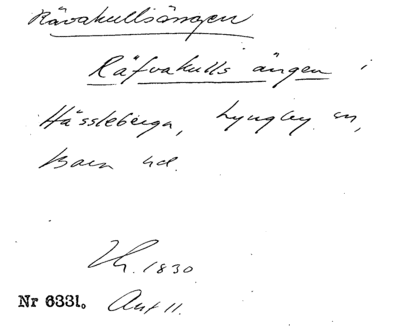 Rävakullsängen
Räfvakulls ängen i
Hässleberga, Lyngby sn,
Bara hd.
Lh. 1830
Nr 6331. Akt 11.